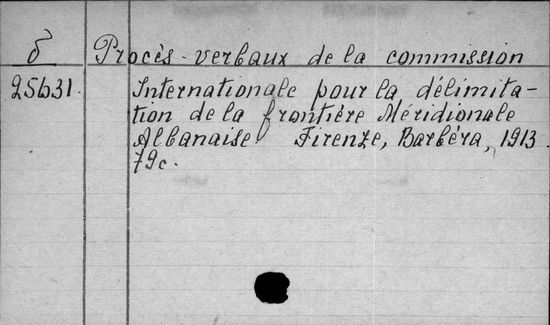 б Procès-verbaux de la commission
25631. Internationale pour la délimita-
tion de la frontière Méridionale
Albanaise. Firenze, Barbéra, 1913.
79c.